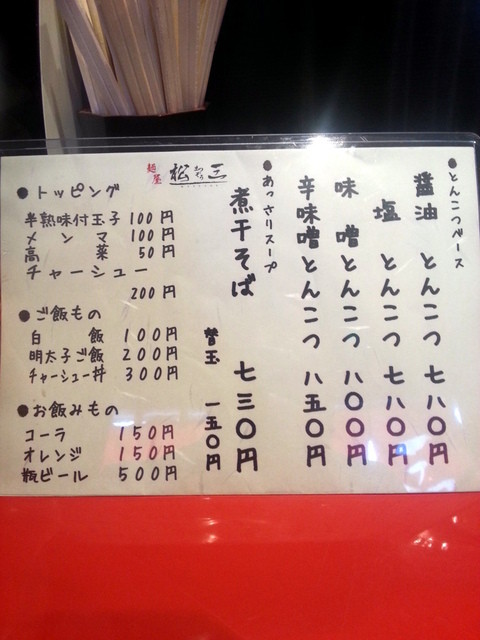 ●とんこつベース
醤油とんこつ 七八〇円
塩とんこつ 七八〇円
味噌とんこつ 八〇〇円
辛味噌とんこつ 八五〇円
●あっさりスープ
煮干そば 七三〇円
替玉 一五〇円
麺屋 松三
●トッピング
半熟味付玉子 100円
メンマ 100円
高菜 50円
チャーシュー
200円
●ご飯もの
白飯 100円
明太子ご飯 200円
チャーシュー丼 300円
●お飲みもの
コーラ 150円
オレンジ 150円
瓶ビール 500円